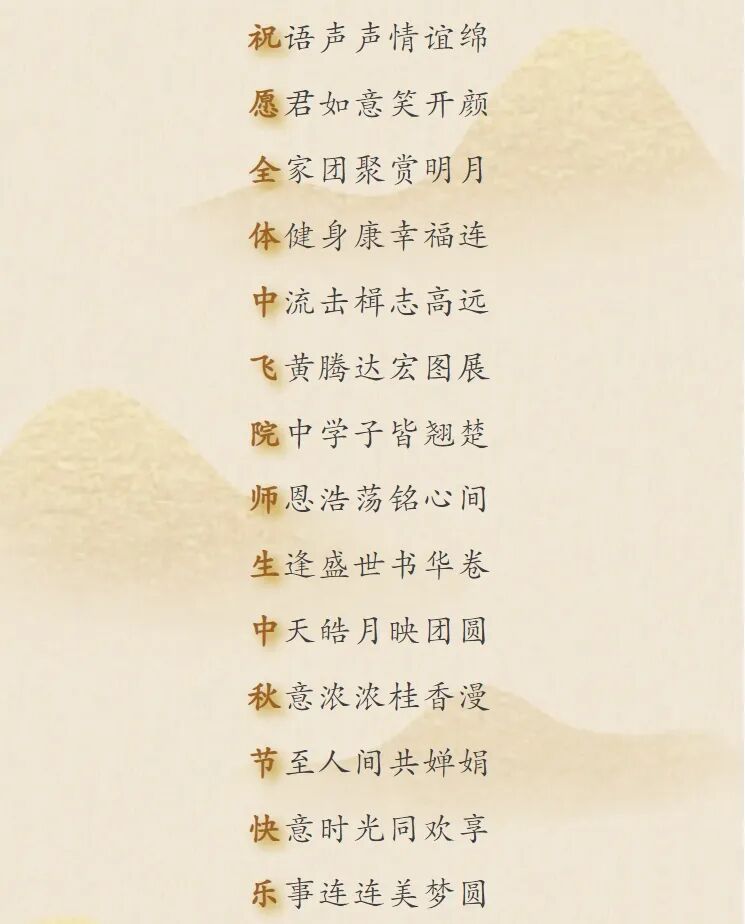 祝语声声情谊绵
愿君如意笑开颜
全家团聚赏明月
体健身康幸福连
中流击楫志高远
飞黄腾达宏图展
院中学子皆翘楚
师恩浩荡铭心间
生逢盛世书华卷
中天皓月映团圆
秋意浓浓桂香漫
节至人间共婵娟
快意时光同欢享
乐事连连美梦圆